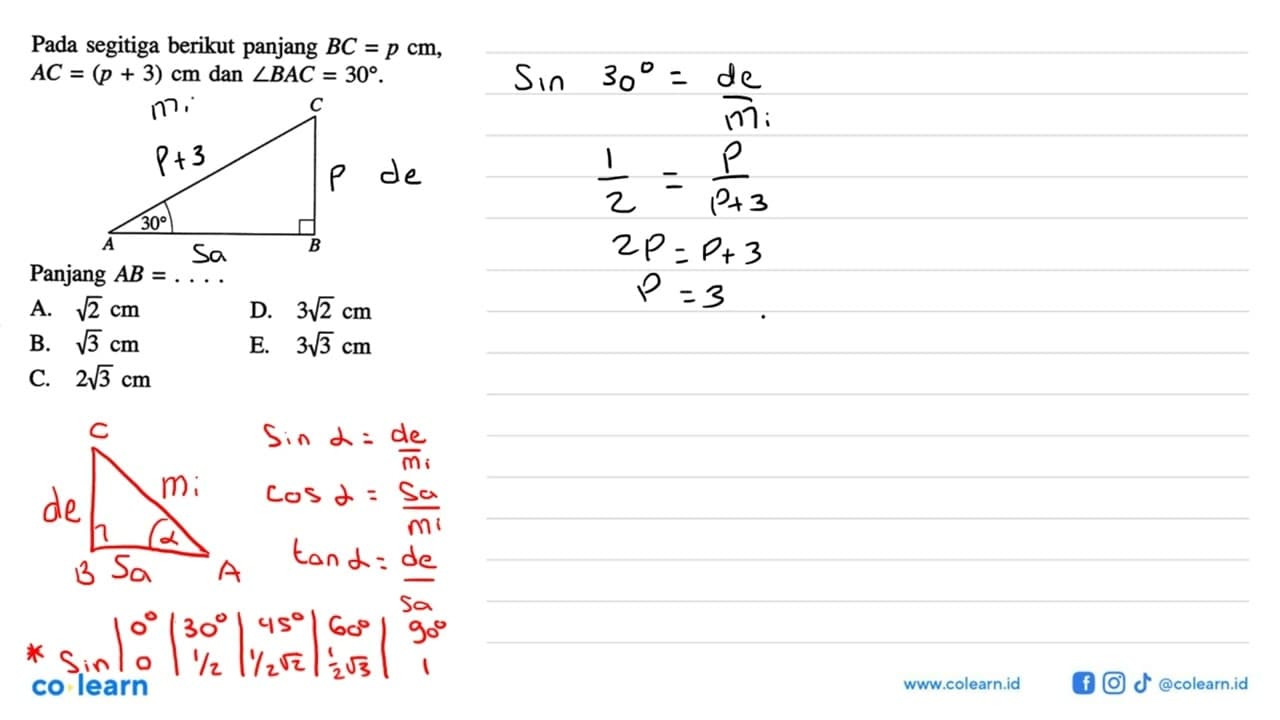 Pada segitiga berikut panjang BC = p cm,
AC = (p + 3) cm dan ∠BAC = 30°.
mi
C
p+3
p de
30°
A
B
Sa
Panjang AB = . . . .
A. √2 cm
D. 3√2 cm
B. √3 cm
E. 3√3 cm
C. 2√3 cm
Sin 30° = de/mi
1/2 = p/p+3
2p = p+3
p = 3
C
de
mi
α
B Sa A
Sin α = de/mi
cos α = Sa/mi
tan α = de/sa
| 0° | 30° | 45° | 60° | 90°
* Sin | 0 | 1/2 | 1/2√2 | 1/2√3 | 1
co learn
www.colearn.id
@colearn.id